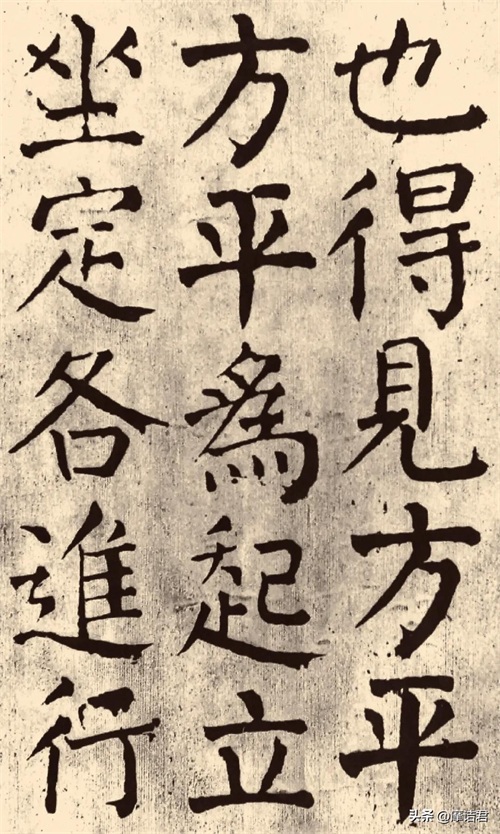 也得見方平
方平為起立
坐定各進行
头条 @摩诘君